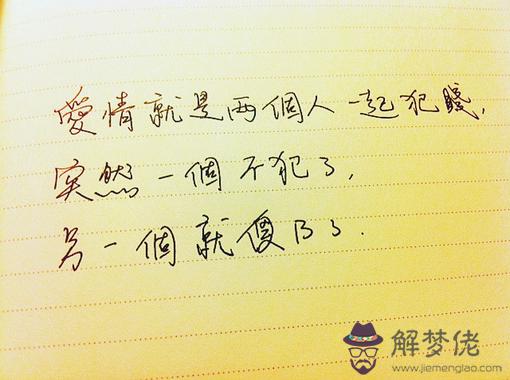 愛情就是兩個人一起犯賤，
突然一個不犯了，
另一個就傻B了．
解梦佬
www.jiemenglao.com